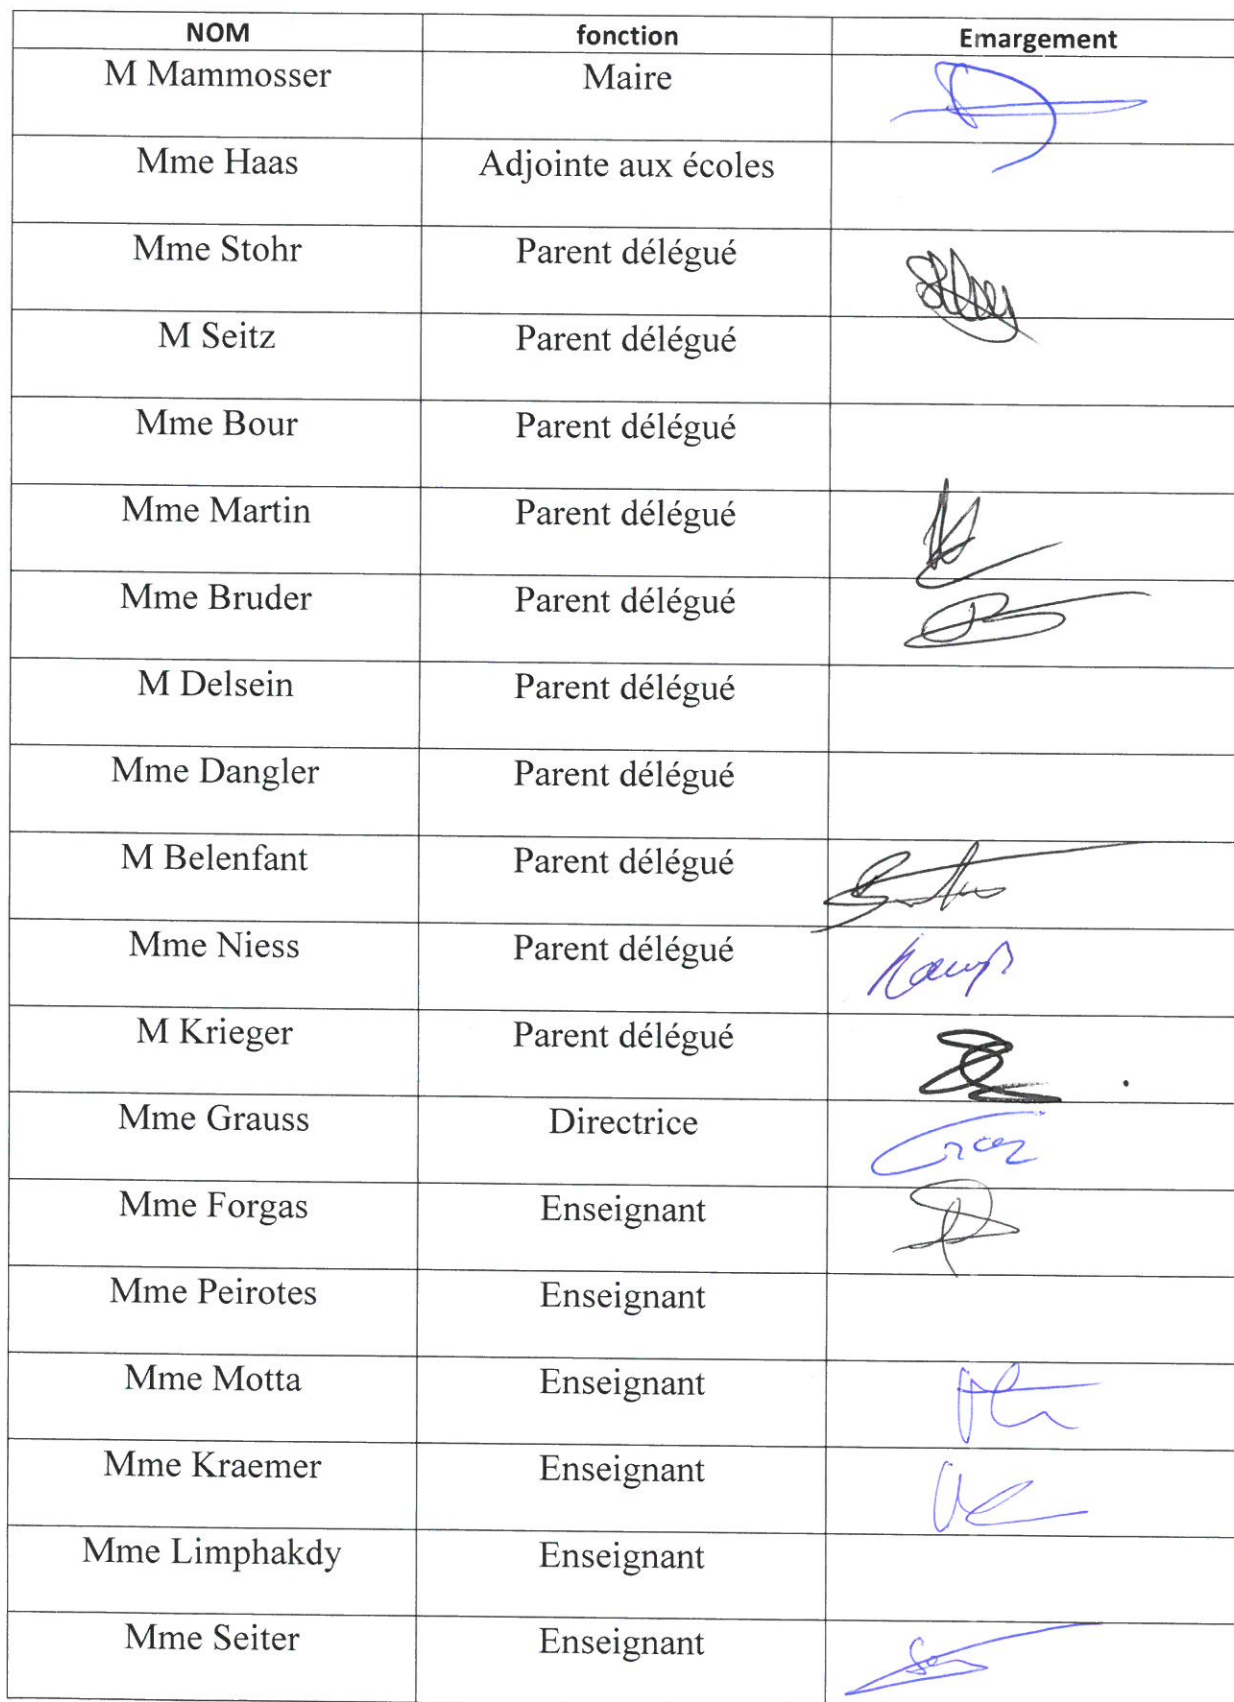 NOM fonction Emargement
M Mammosser Maire
Mme Haas Adjointe aux écoles
Mme Stohr Parent délégué
M Seitz Parent délégué
Mme Bour Parent délégué
Mme Martin Parent délégué
Mme Bruder Parent délégué
M Delsein Parent délégué
Mme Dangler Parent délégué
M Belenfant Parent délégué
Mme Niess Parent délégué
M Krieger Parent délégué
Mme Grauss Directrice
Mme Forgas Enseignant
Mme Peirotes Enseignant
Mme Motta Enseignant
Mme Kraemer Enseignant
Mme Limphakdy Enseignant
Mme Seiter Enseignant